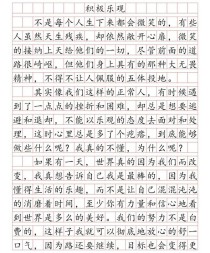 积极乐观
不是每个人生下来都会微笑的，有些
人虽然天生残疾，却依然敞开心扉，微笑
的接纳上天给他们的一切，尽管前面的道
路很崎岖，但他们身上具有的那种大无畏
精神，不得不让人佩服的五体投地。
其实像我们这样的正常人，有时候遇
到了一点点的挫折和困难，却总是想要逃
避和退却，不能以乐观的态度去面对和处
理，这时心里总是多了个疙瘩，到底能够
做些什么呢？我真的不懂，为什么呢？
如果有一天，世界真的因为我们而改
变，我真想告诉自己我是最棒的，因为我
懂得生活的乐趣，而不是让自己混混沌沌
的消磨着时间，至少你有力量和信心地看
到世界是多么的美好。我们的努力不是白
费的，这样子我就可以彻底地放心的呼一
口气，因为路还要继续，目标也会变得更